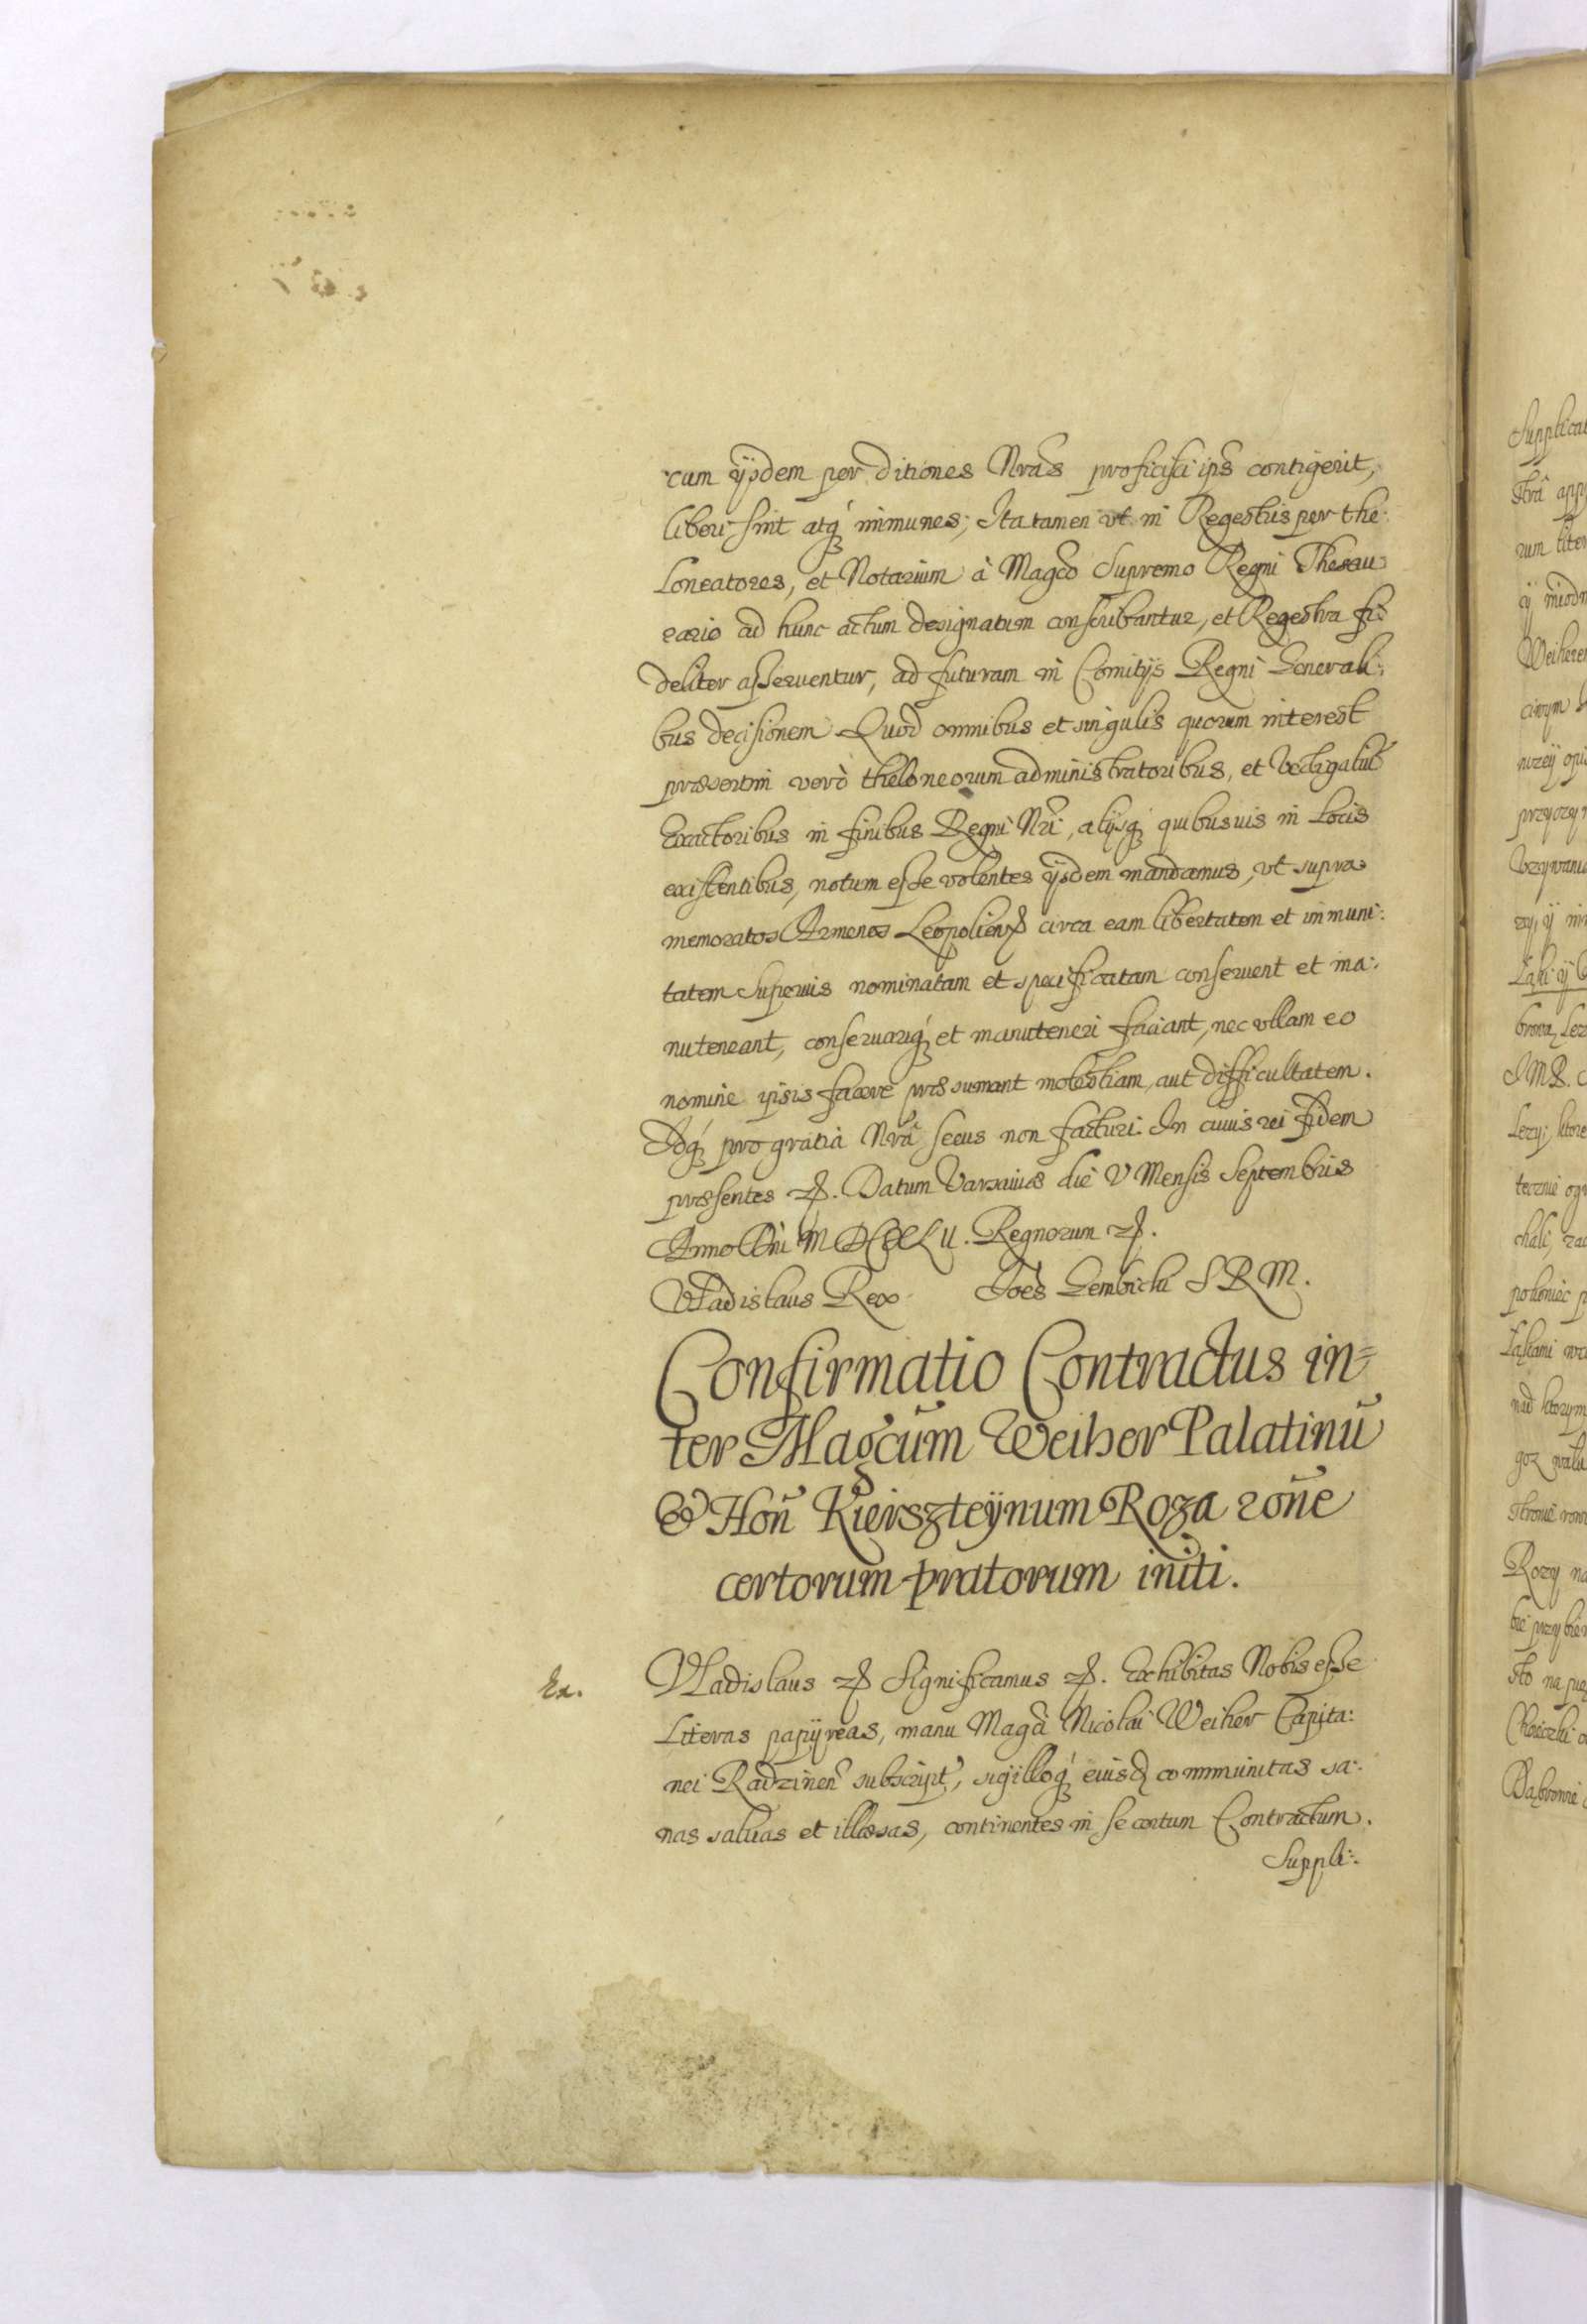 cum ijsdem per ditiones Nras proficisci ips contigerit,
liberi sint atq́ immunes; Ita tamen vt in Regestris per the:
loneatores, et Notarium à Magco Supremo Regni Thesau:
rario ad hunc actum designatum conscribantur, et Regestra fi:
deliter asseruentur, ad futuram in Comitijs Regni Generali:
bus decisionem. Quod omnibus et singulis quorum interest
præsertim verò theloneorum administratoribus, et Vectigaliu
Exactoribus in finibus Regni Nri, alijsq́ quibusuis in Locis
existentibus, notum esse volentes ijsdem mandamus, vt supra
memoratos Armenos Leopolien circa eam libertatem et immuni:
tatem superius nominatam et specificatam conseruent et ma:
nuteneant, conseruariq́ et manuteneri faciant, nec vllam eo
nomine ipsis facere præsumant molestiam, aut difficultatem.
Idq́ pro gratia Nrâ secus non facturi. In cuius rei fidem
præsentes etc. Datum Varsauiæ die V Mensis Septembris
Anno Dni MDCXLII. Regnorum etc.
Vladislaus Rex Joẽs Gembicki S R M.
Confirmatio Contractus in=
ter Magcum Weiher Palatinũ
& Hoñ Kierszteÿnum Roza roñe
certorum pratorum initi.
Ex. Vladislaus etc Significamus etc. Exhibitas Nobis esse
Literas papÿreas, manu Magci Nicolai Weiher Capita:
nei Radzinen subscript, sigilloq́ eiusd communitas sa:
nas saluas et illæsas, continentes in se certum Contractum.
Suppli: